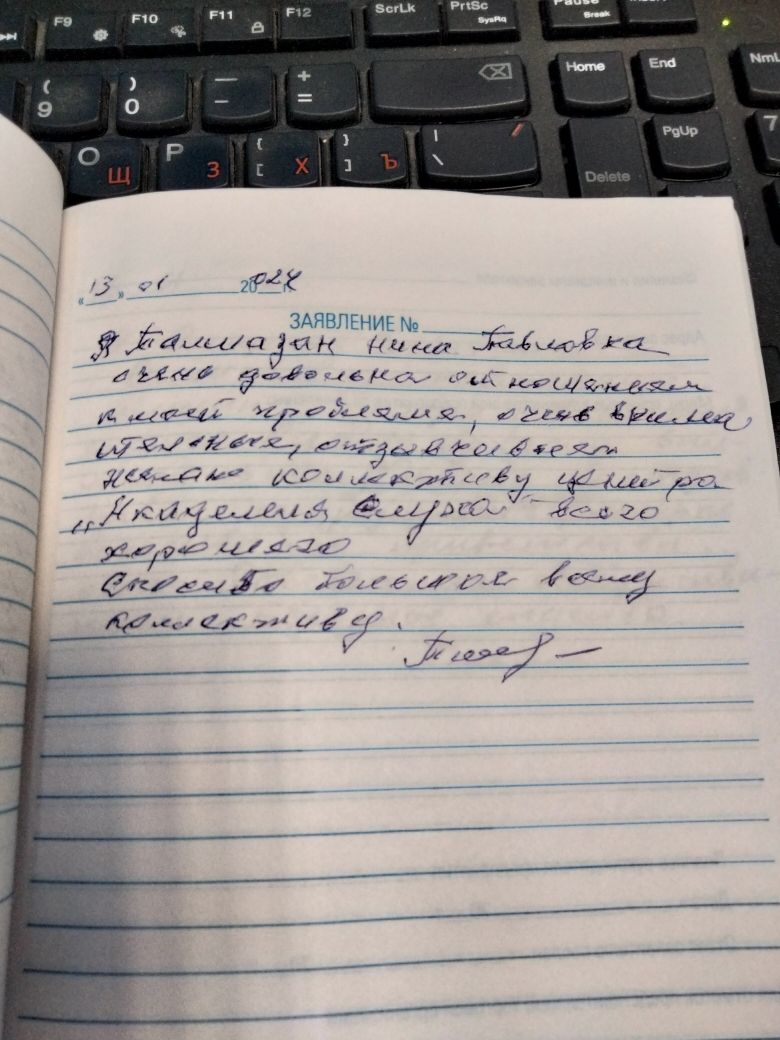 F9 F10 F11 F12 ScrLk PrtSc SysRq Pause Break
( 9 ) 0 — - + = Home End NmL
О Щ P З { [ Х } ] Ъ | \ / Delete PgUp 7
«13» 01 2024 г.
ЗАЯВЛЕНИЕ №
Я Талмазан Нина Павловна
очень довольна отношением
к моей проблеме, очень внима
тельные, отзывчивые
желаю коллективу центра
„Академия Слуха" всего
хорошего
Спасибо большое всему
коллективу.